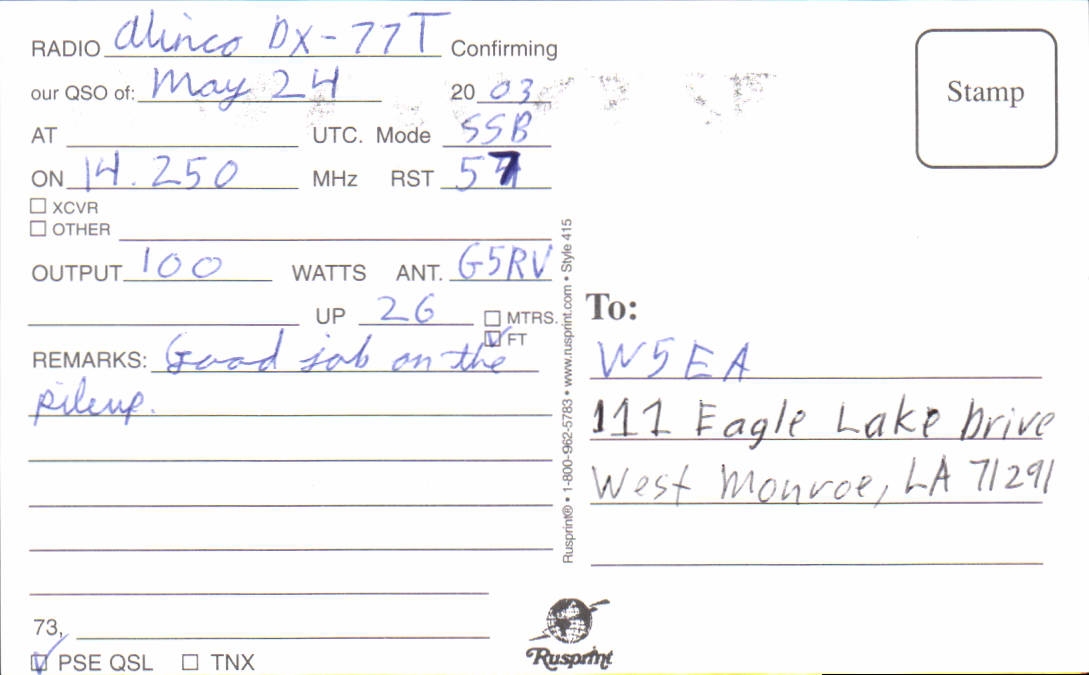 RADIO Alinco DX-77T Confirming
our QSO of: May 24 20 03
AT UTC. Mode SSB
ON 14.250 MHz RST 57
XCVR
OTHER
OUTPUT 100 WATTS ANT. G5RV
UP 26 MTRS.
FT
REMARKS: Good job on the
pileup.
73,
PSE QSL TNX
Rusprint® • 1-800-962-5783 • www.rusprint.com • Style 415
Stamp
To:
W5EA
111 Eagle Lake Drive
West Monroe, LA 71291
Rusprint